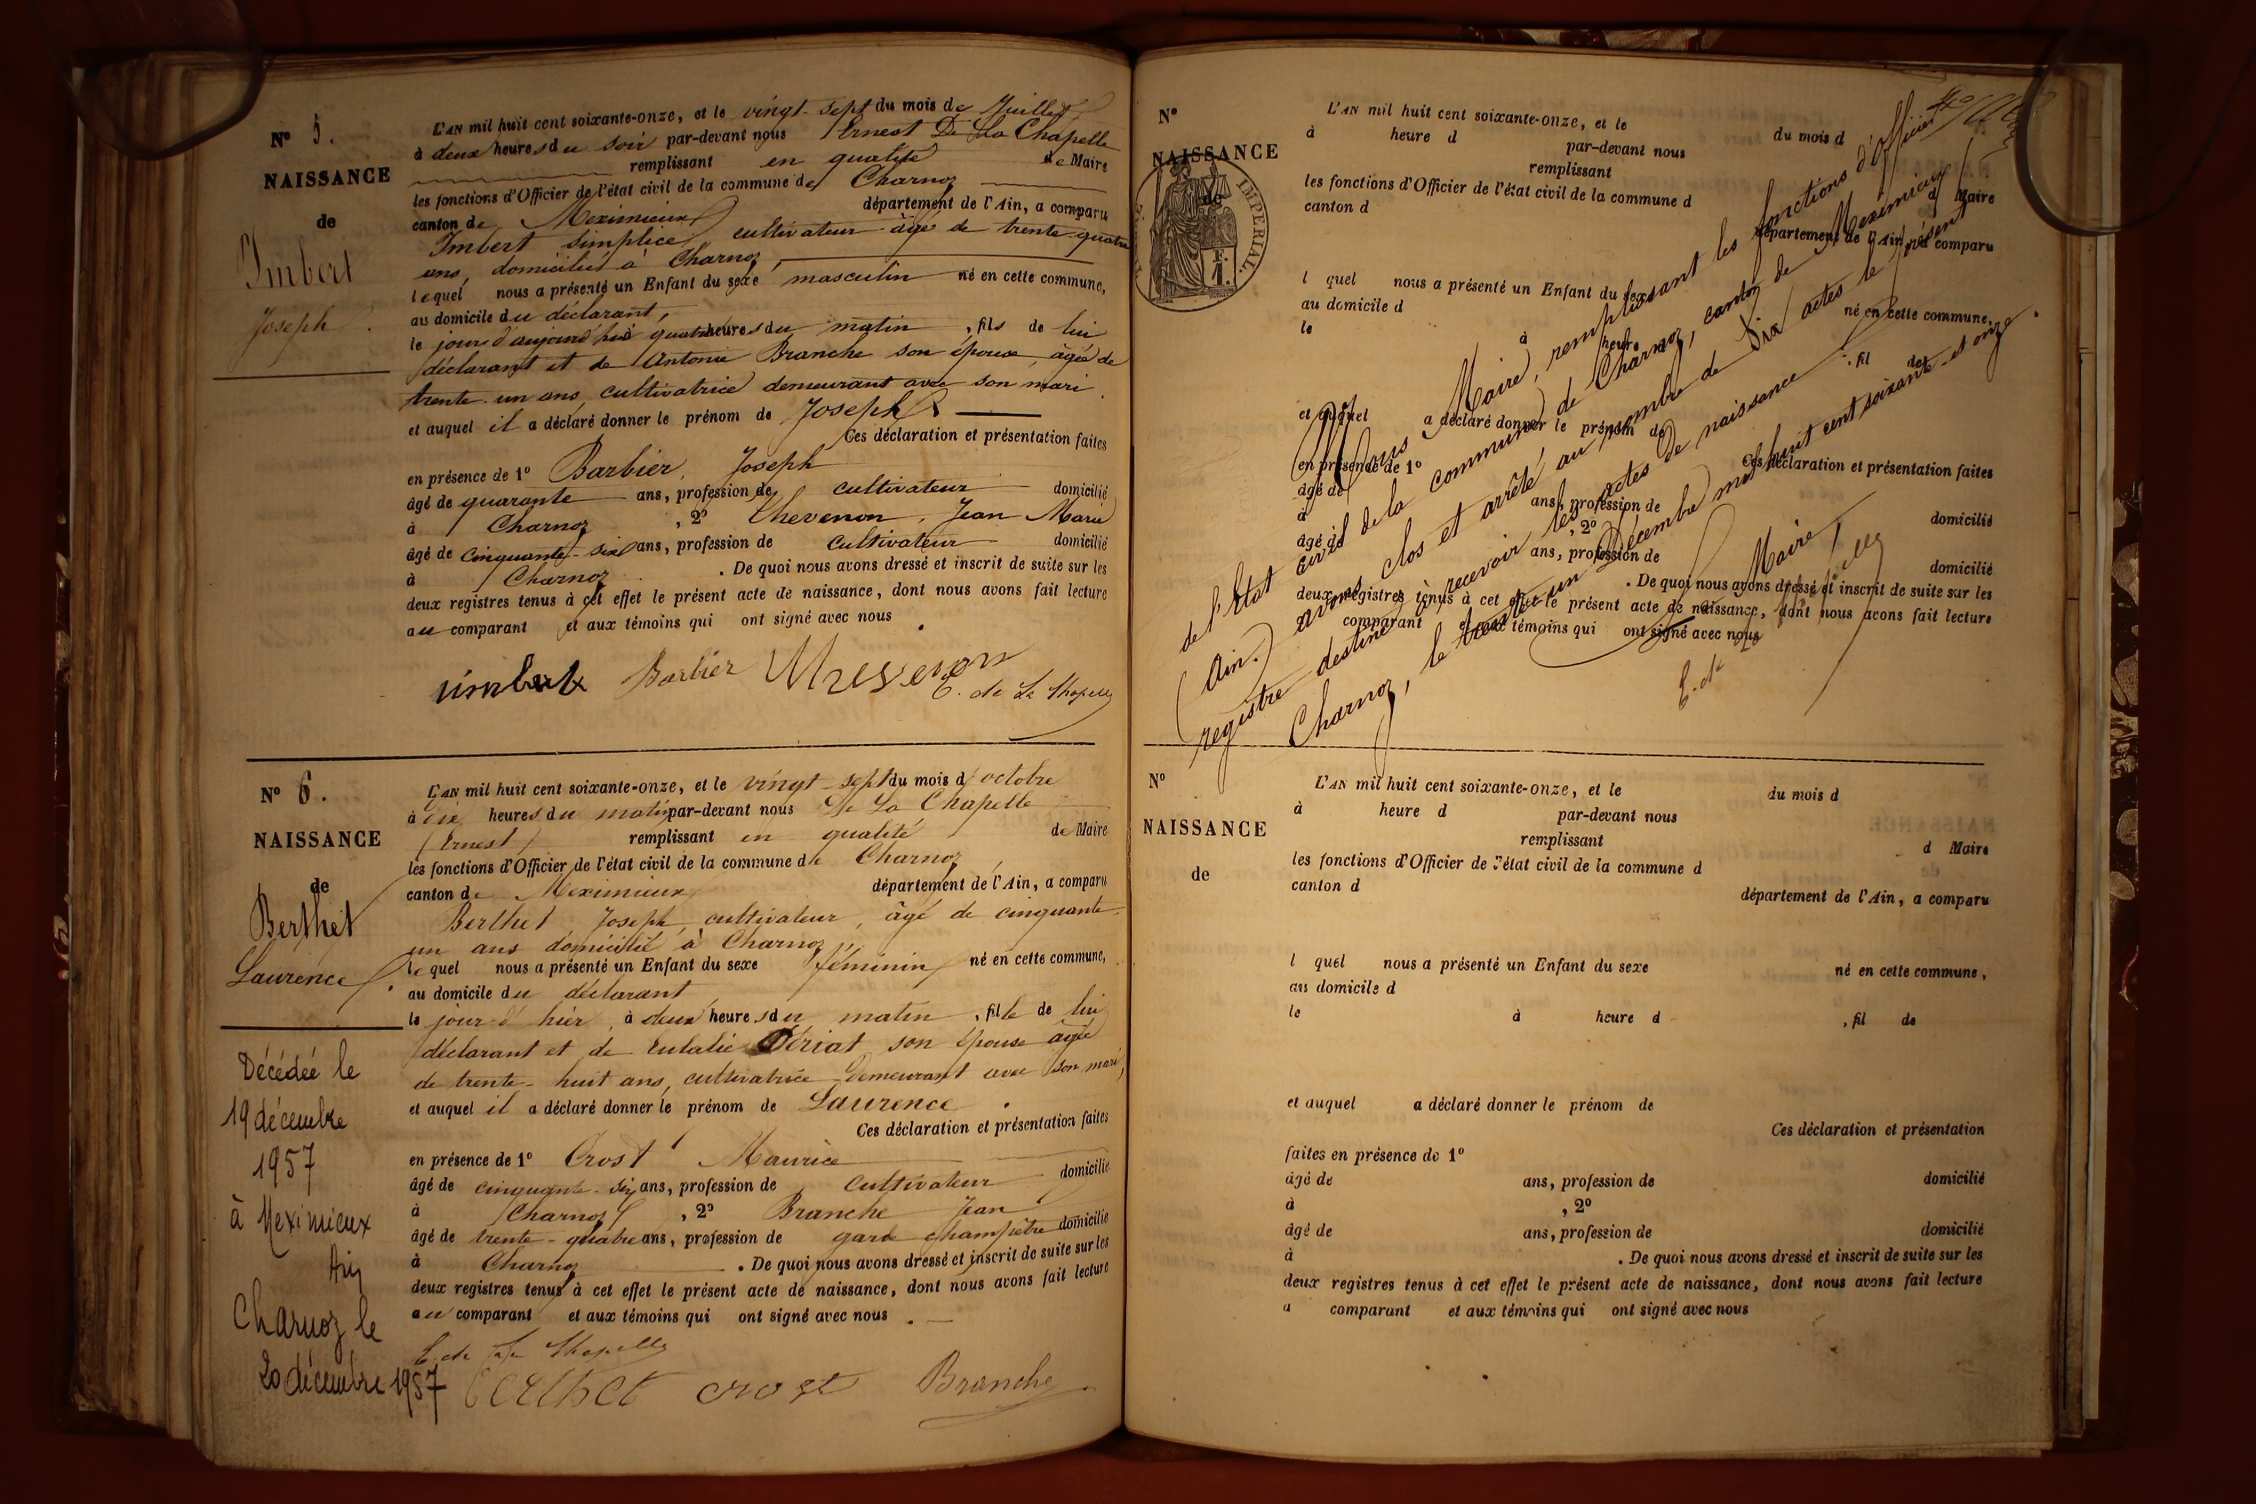 N° 5.
NAISSANCE
de
Imbert
Joseph.
L'AN mil huit cent soixante-onze, et le vingt-sept du mois de Juillet
à deux heures du soir par-devant nous Ernest De La Chapelle
remplissant en qualité de Maire
les fonctions d'Officier de l'état civil de la commune de Charnoz
canton de Meximieux département de l'Ain, a comparu
Imbert Simplice cultivateur âgé de trente quatre
ans, domicilié à Charnoz,
lequel nous a présenté un Enfant du sexe masculin né en cette commune,
au domicile du déclarant,
le jour d'aujourd'hui quatre heures du matin, fils de lui
déclarant et de Antonie Branche son épouse âgée de
trente-un ans, cultivatrice demeurant avec son mari.
et auquel il a déclaré donner le prénom de Joseph
Ces déclaration et présentation faites
en présence de 1° Barbier, Joseph
âgé de quarante ans, profession de cultivateur domicilié
à Charnoz, 2° Chevenon, Jean Marie
âgé de cinquante-six ans, profession de cultivateur domicilié
à Charnoz. De quoi nous avons dressé et inscrit de suite sur les
deux registres tenus à cet effet le présent acte de naissance, dont nous avons fait lecture
au comparant et aux témoins qui ont signé avec nous.
imbert Barbier E. de La Chapelle
N° 6.
NAISSANCE
de
Berthet
Laurence.
Décédée le
19 décembre
1957
à Meximieux
Ain
Charnoz le
20 décembre 1957
L'AN mil huit cent soixante-onze, et le vingt-sept du mois d'octobre
à dix heures du matin par-devant nous De La Chapelle
(Ernest) remplissant en qualité de Maire
les fonctions d'Officier de l'état civil de la commune de Charnoz
canton de Meximieux département de l'Ain, a comparu
Berthet Joseph, cultivateur, âgé de cinquante-
un ans domicilié à Charnoz
lequel nous a présenté un Enfant du sexe féminin né en cette commune,
au domicile du déclarant
le jour d'hier, à deux heures du matin, fille de lui
déclarant et de Eulalie Dériat son épouse âgée
de trente-huit ans, cultivatrice demeurant avec son mari,
et auquel il a déclaré donner le prénom de Laurence.
Ces déclaration et présentation faites
en présence de 1° Crost Maurice
âgé de cinquante-six ans, profession de cultivateur domicilié
à Charnoz, 2° Branche Jean
âgé de trente-quatre ans, profession de garde champêtre domicilié
à Charnoz. De quoi nous avons dressé et inscrit de suite sur les
deux registres tenus à cet effet le présent acte de naissance, dont nous avons fait lecture
au comparant et aux témoins qui ont signé avec nous.
E. de La Chapelle
Berthet crost Branche
N°
NAISSANCE
de
IMPERIAL.
1F.
L'AN mil huit cent soixante-onze, et le du mois d
à heure d par-devant nous
remplissant d Maire
les fonctions d'Officier de l'état civil de la commune d
canton d département de l'Ain, a comparu
l quel nous a présenté un Enfant du sexe né en cette commune,
au domicile d
le à heure d , fil de
et auquel a déclaré donner le prénom de
Ces déclaration et présentation faites
en présence de 1°
âgé de ans, profession de domicilié
à , 2°
âgé de ans, profession de domicilié
à . De quoi nous avons dressé et inscrit de suite sur les
deux registres tenus à cet effet le présent acte de naissance, dont nous avons fait lecture
comparant et aux témoins qui ont signé avec nous
Nous Maire, remplissant les fonctions d'officier
de l'Etat civil de la commune de Charnoz, canton de Meximieux
(Ain.) avons clos et arrêté au nombre de six actes le présent
registre destiné à recevoir les actes de naissance.
Charnoz, le trente-un Décembre mil huit cent soixante-et onze.
Maire
E. de La Chapelle
N°
NAISSANCE
de
L'AN mil huit cent soixante-onze, et le du mois d
à heure d par-devant nous
remplissant d Maire
les fonctions d'Officier de l'état civil de la commune d
canton d département de l'Ain, a comparu
l quel nous a présenté un Enfant du sexe né en cette commune,
au domicile d
le à heure d , fil de
et auquel a déclaré donner le prénom de
Ces déclaration et présentation
faites en présence de 1°
âgé de ans, profession de domicilié
à , 2°
âgé de ans, profession de domicilié
à . De quoi nous avons dressé et inscrit de suite sur les
deux registres tenus à cet effet le présent acte de naissance, dont nous avons fait lecture
a comparant et aux témoins qui ont signé avec nous